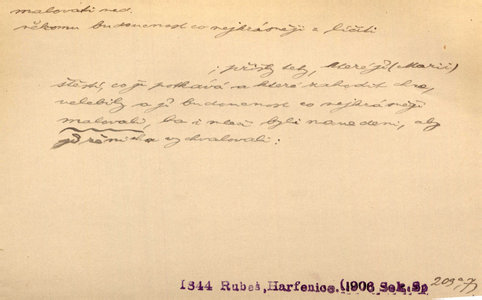 malovati ned.
někomu budoucnost co nejkrásněji = líčiti
; přišly tety, které jí (Marii)
štěstí, co ji potkává a které zahodit chce,
velebily a jí budoucnost co nejkrásněji
malovali, ba i mladí byli navedeni, aby
jí ženicha vychvalovali:
1844 Rubeš, Harfenice. (1906 Sek. Sp
209